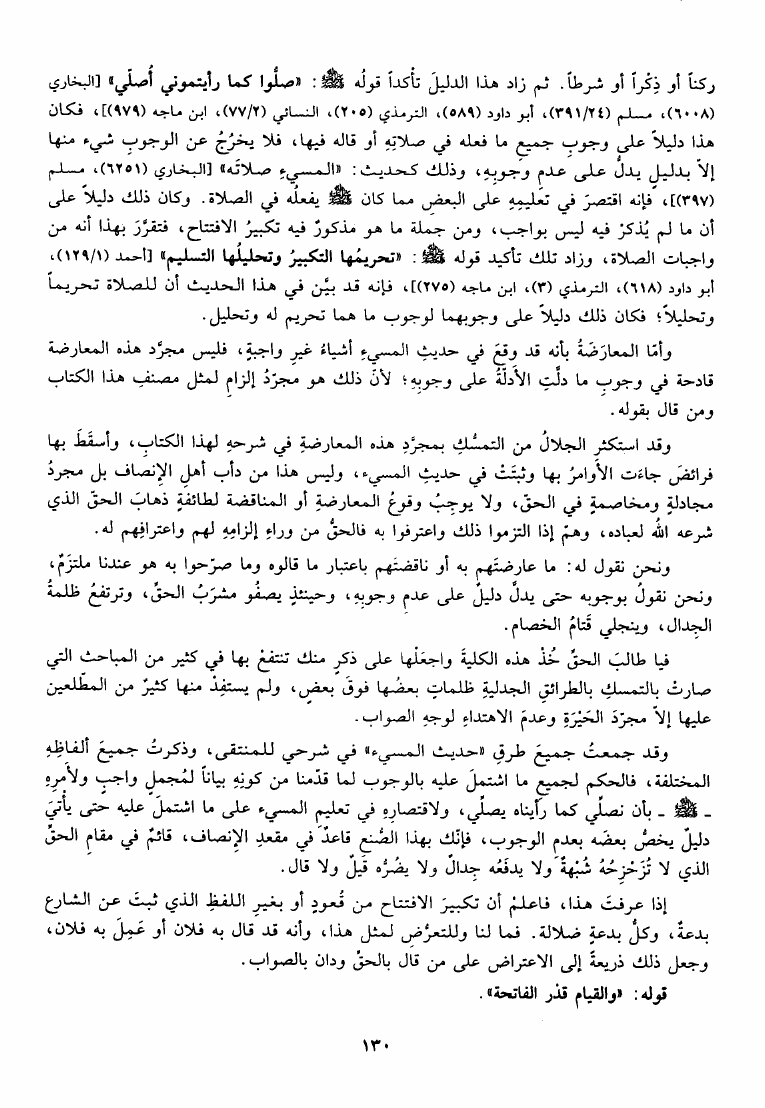 ركناً أو ذِكْراً أو شرطاً. ثم زاد هذا الدليلَ تأكداً قولُه ﷺ: «صلُّوا كما رأيتموني أُصلّي» [البخاري
(٦٠٠٨)، مسلم (٣٩١/٢٤)، أبو داود (٥٨٩)، الترمذي (٢٠٥)، النسائي (٧٧/٢)، ابن ماجه (٩٧٩)]، فكان
هذا دليلاً على وجوبِ جميعِ ما فعله في صلاتِهِ أو قاله فيها، فلا يخرُجُ عن الوجوبِ شيء منها
إلاّ بدليلٍ يدلُّ على عدمِ وجوبِهِ، وذلك كحديث: «المسيءِ صلاتَه» [البخاري (٦٢٥١)، مسلم
(٣٩٧)]، فإنه اقتصرَ في تعليمِهِ على البعضِ مما كان ﷺ يفعلُه في الصلاة. وكان ذلك دليلاً على
أن ما لم يُذكرْ فيه ليس بواجب، ومن جملة ما هو مذكورٌ فيه تكبيرُ الافتتاح، فتقرَّرَ بهذا أنه من
واجبات الصلاة، وزاد تلك تأكيد قوله ﷺ: «تحريمُها التكبيرُ وتحليلُها التسليم» [أحمد (١٢٩/١)،
أبو داود (٦١٨)، الترمذي (٣)، ابن ماجه (٢٧٥)]، فإنه قد بيَّن في هذا الحديث أن للصلاة تحريماً
وتحليلاً؛ فكان ذلك دليلاً على وجوبهما لوجوب ما هما تحريم له وتحليل.
وأمّا المعارَضَةُ بأنه قد وقعَ في حديثِ المسيءِ أشياءُ غيرِ واجبةٍ، فليس مجرَّد هذه المعارضة
قادحة في وجوبِ ما دلَّتِ الأدلَّةُ على وجوبِهِ؛ لأنّ ذلك هو مجرّدُ إلزامٍ لمثل مصنفِ هذا الكتاب
ومن قال بقوله.
وقد استكثر الجلالُ من التمسُّكِ بمجرَّدِ هذه المعارضةِ في شرحهِ لهذا الكتابِ، وأسقَطَ بها
فرائضَ جاءَت الأوامرُ بها وثبتَتْ في حديثِ المسيء، وليس هذا من دأب أهلِ الإنصاف بل مجردُ
مجادلةٍ ومخاصمةٍ في الحقّ، ولا يوجِبُ وقوعُ المعارضةِ أو المناقضة لطائفةٍ ذهابَ الحقّ الذي
شرعه اللهُ لعباده، وهمّ إذا التزموا ذلك واعترفوا به فالحقُّ من وراءِ إلزامِهِ لهم واعترافِهم له.
ونحن نقول له: ما عارضتَهم به أو ناقضتَهم باعتبار ما قالوه وما صرّحوا به هو عندنا ملتزَمٌ،
ونحن نقولُ بوجوبه حتى يدلَّ دليلٌ على عدمِ وجوبِهِ، وحينئذٍ يصفُو مشرَبُ الحقِّ، وترتفعُ ظلمةُ
الجِدال، وينجلي قَتامُ الخصام.
فيا طالبَ الحقِّ خُذْ هذه الكليةَ واجعَلْها على ذكرٍ منك تنتفعْ بها في كثير من المباحث التي
صارتْ بالتمسكِ بالطرائقِ الجدليةِ ظلماتٍ بعضُها فوقَ بعضٍ، ولم يستفِدْ منها كثيرٌ من المطّلعين
عليها إلاّ مجرّدَ الحَيْرَةِ وعدمَ الاهتداءِ لوجهِ الصواب.
وقد جمعتُ جميعَ طرقِ «حديث المسيء» في شرحي للمنتقى، وذكرتُ جميعَ ألفاظِهِ
المختلفة، فالحكم لجميعِ ما اشتملَ عليه بالوجوب لما قدّمنا من كونِهِ بياناً لمُجملٍ واجبٍ ولأمرِهِ
ـ ﷺ ـ بأن نصلِّي كما رأيناه يصلّي، ولاقتصارِهِ في تعليم المسيء على ما اشتملَ عليه حتى يأتيَ
دليلٌ يخصُّ بعضَه بعدمِ الوجوب، فإنّك بهذا الصُّنع قاعدٌ في مقعدِ الإنصاف، قائمٌ في مقامِ الحقِّ
الذي لا تُزَحْزِحُهُ شُبْهَةٌ ولا يدفعُه جِدالٌ ولا يضُرُّه قيلٌ ولا قال.
إذا عرفتَ هذا، فاعلمْ أن تكبيرَ الافتتاح من قُعودٍ أو بغيرِ اللفظِ الذي ثبتَ عن الشارع
بدعةٌ، وكلُّ بدعةٍ ضلالة. فما لنا وللتعرُّض لمثل هذا، وأنه قد قال به فلان أو عَمِلَ به فلان،
وجعل ذلك ذريعةً إلى الاعتراض على من قال بالحقِّ ودان بالصواب.
قوله: «والقيام قدْر الفاتحة».
١٣٠